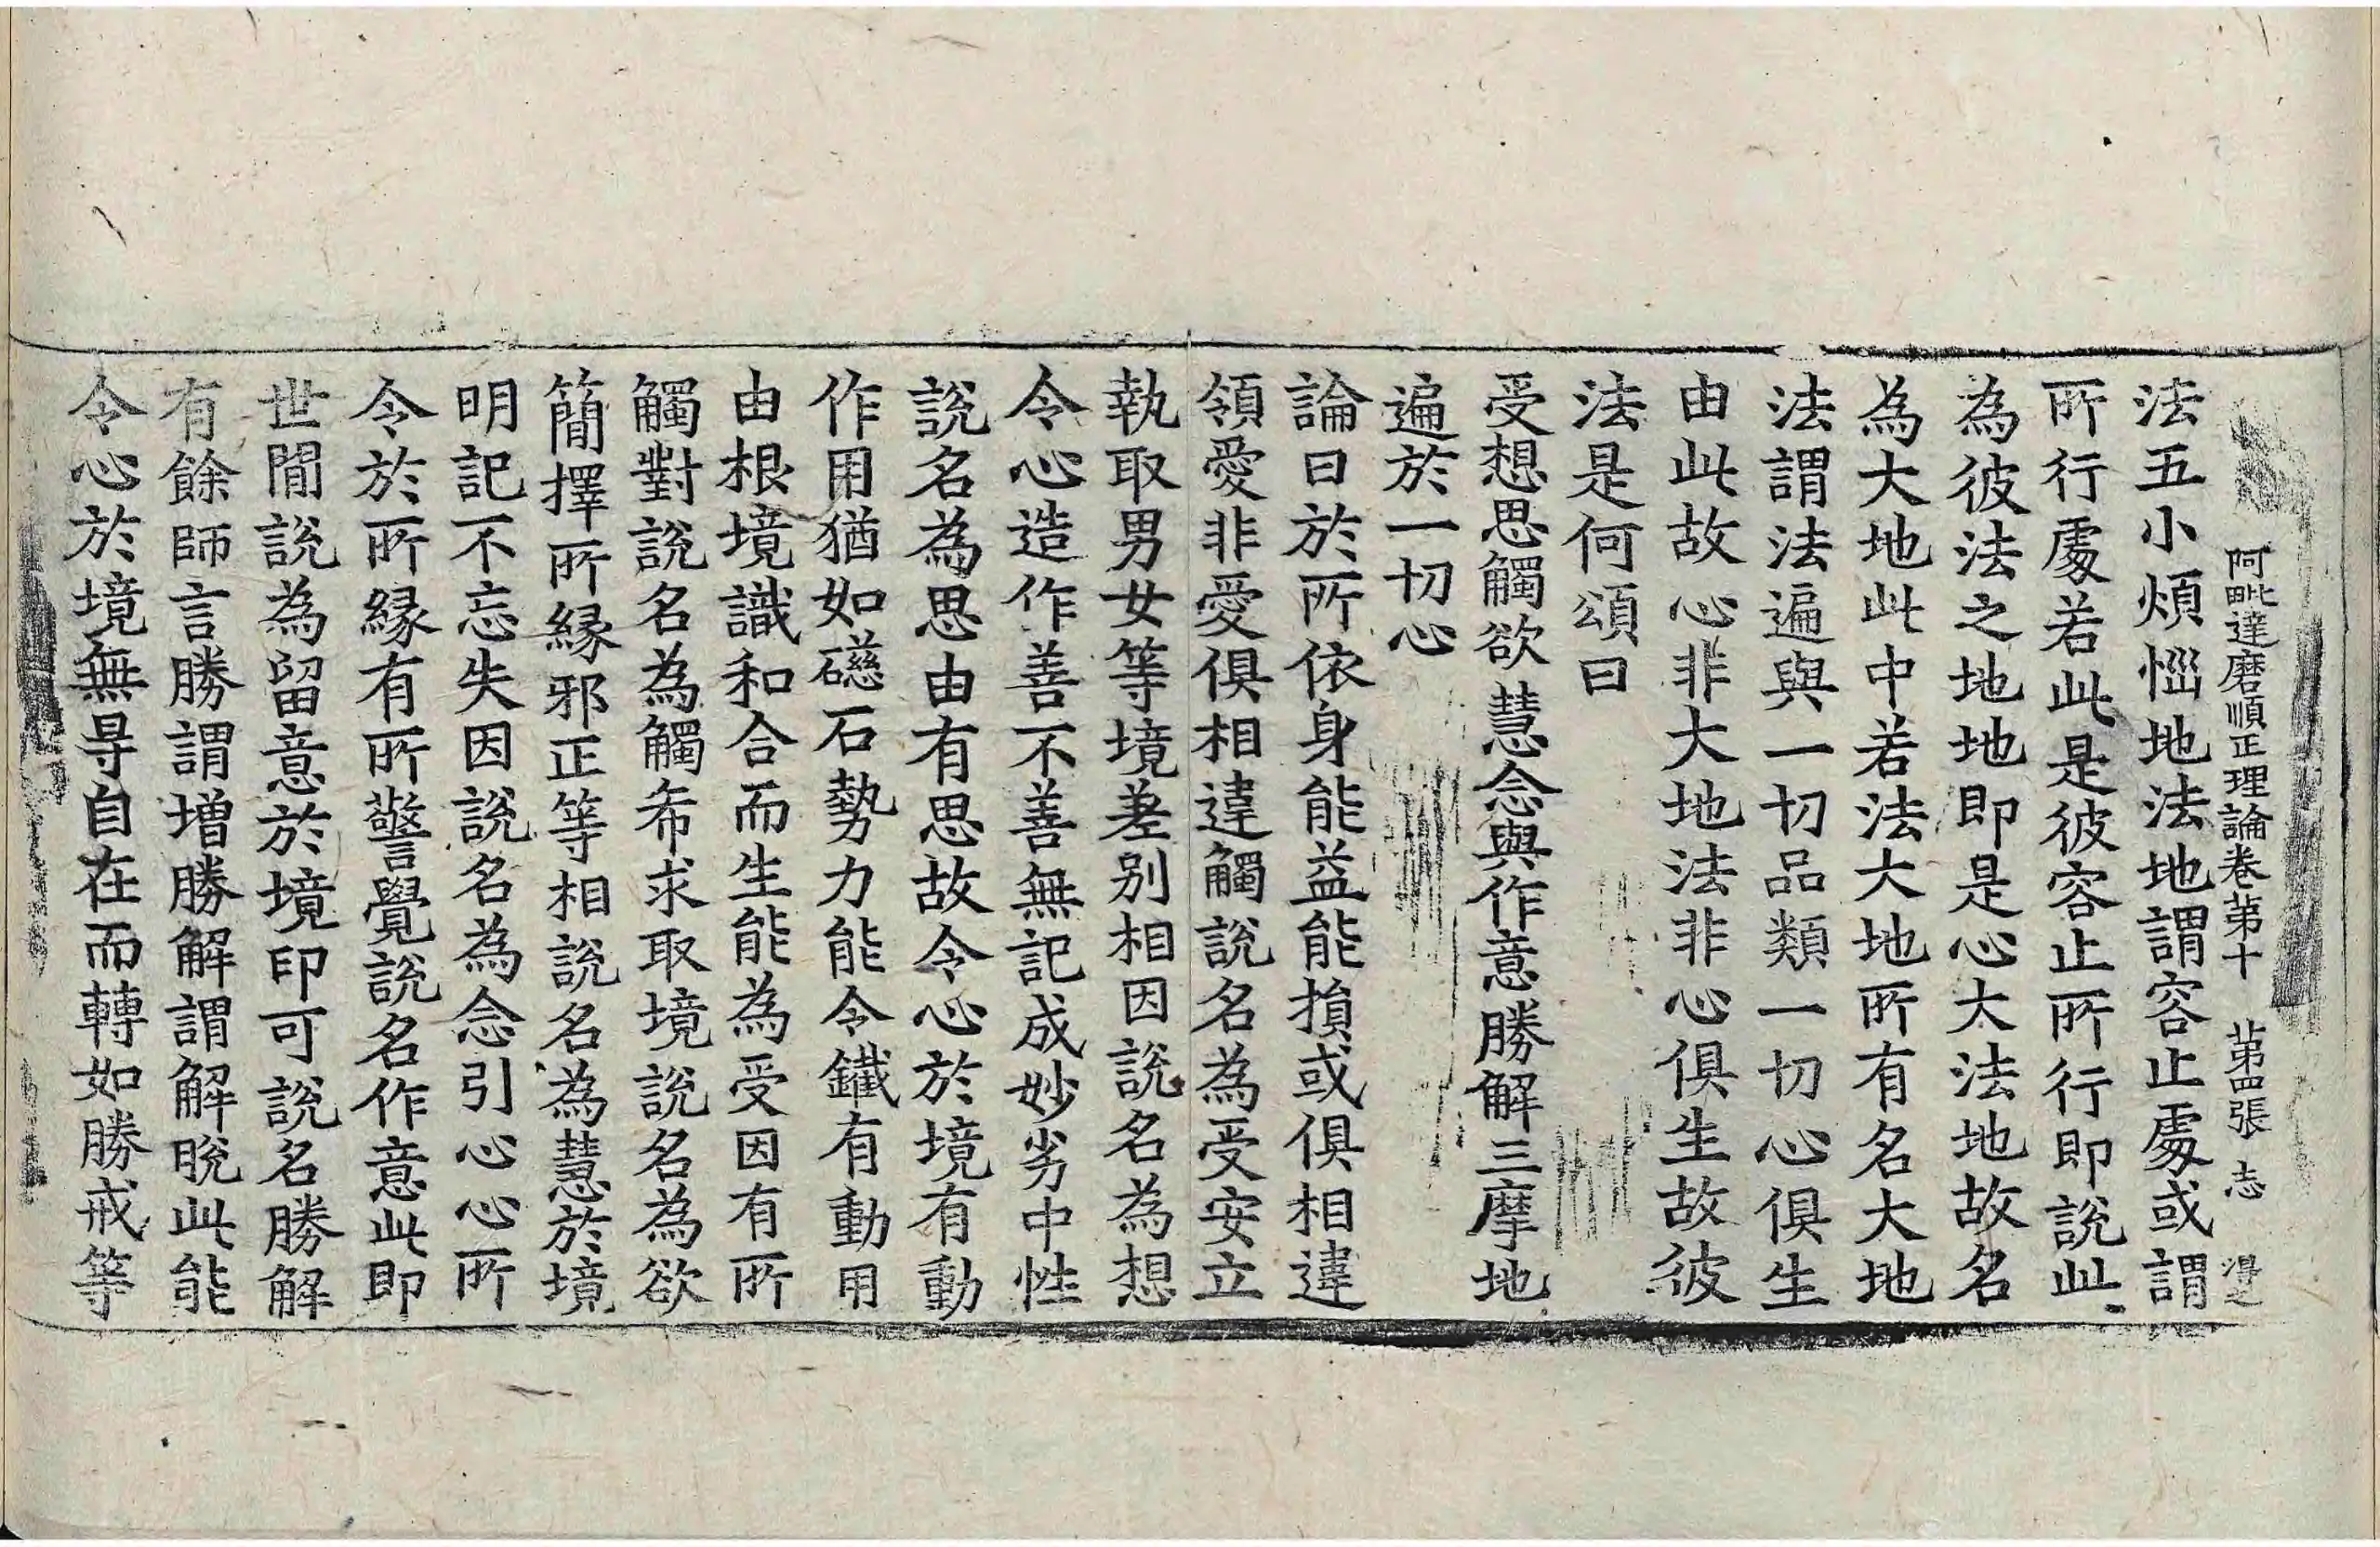 阿毗達磨順正理論卷第十 苐四張 志
法五小煩惱地法地謂容止處或謂
所行處若此是彼容止所行即說此
為彼法之地地即是心大法地故名
為大地此中若法大地所有名大地
法謂法遍與一切品類一切心俱生
由此故心非大地法非心俱生故彼
法是何頌曰
受想思觸欲 慧念與作意 勝解三摩地
遍於一切心
論曰於所依身能益能損或俱相違
領愛非愛俱相違觸說名為受安立
執取男女等境差别相因說名為想
令心造作善不善無記成妙劣中性
說名為思由有思故令心於境有動
作用猶如礠石勢力能令鐵有動用
由根境識和合而生能為受因有所
觸對說名為觸希求取境說名為欲
簡擇所緣邪正等相說名為慧於境
明記不忘失因說名為念引心心所
令於所緣有所警覺說名作意此即
世閒說為留意於境印可說名勝解
有餘師言勝謂增勝解謂解脫此能
令心於境無㝵自在而轉如勝戒等